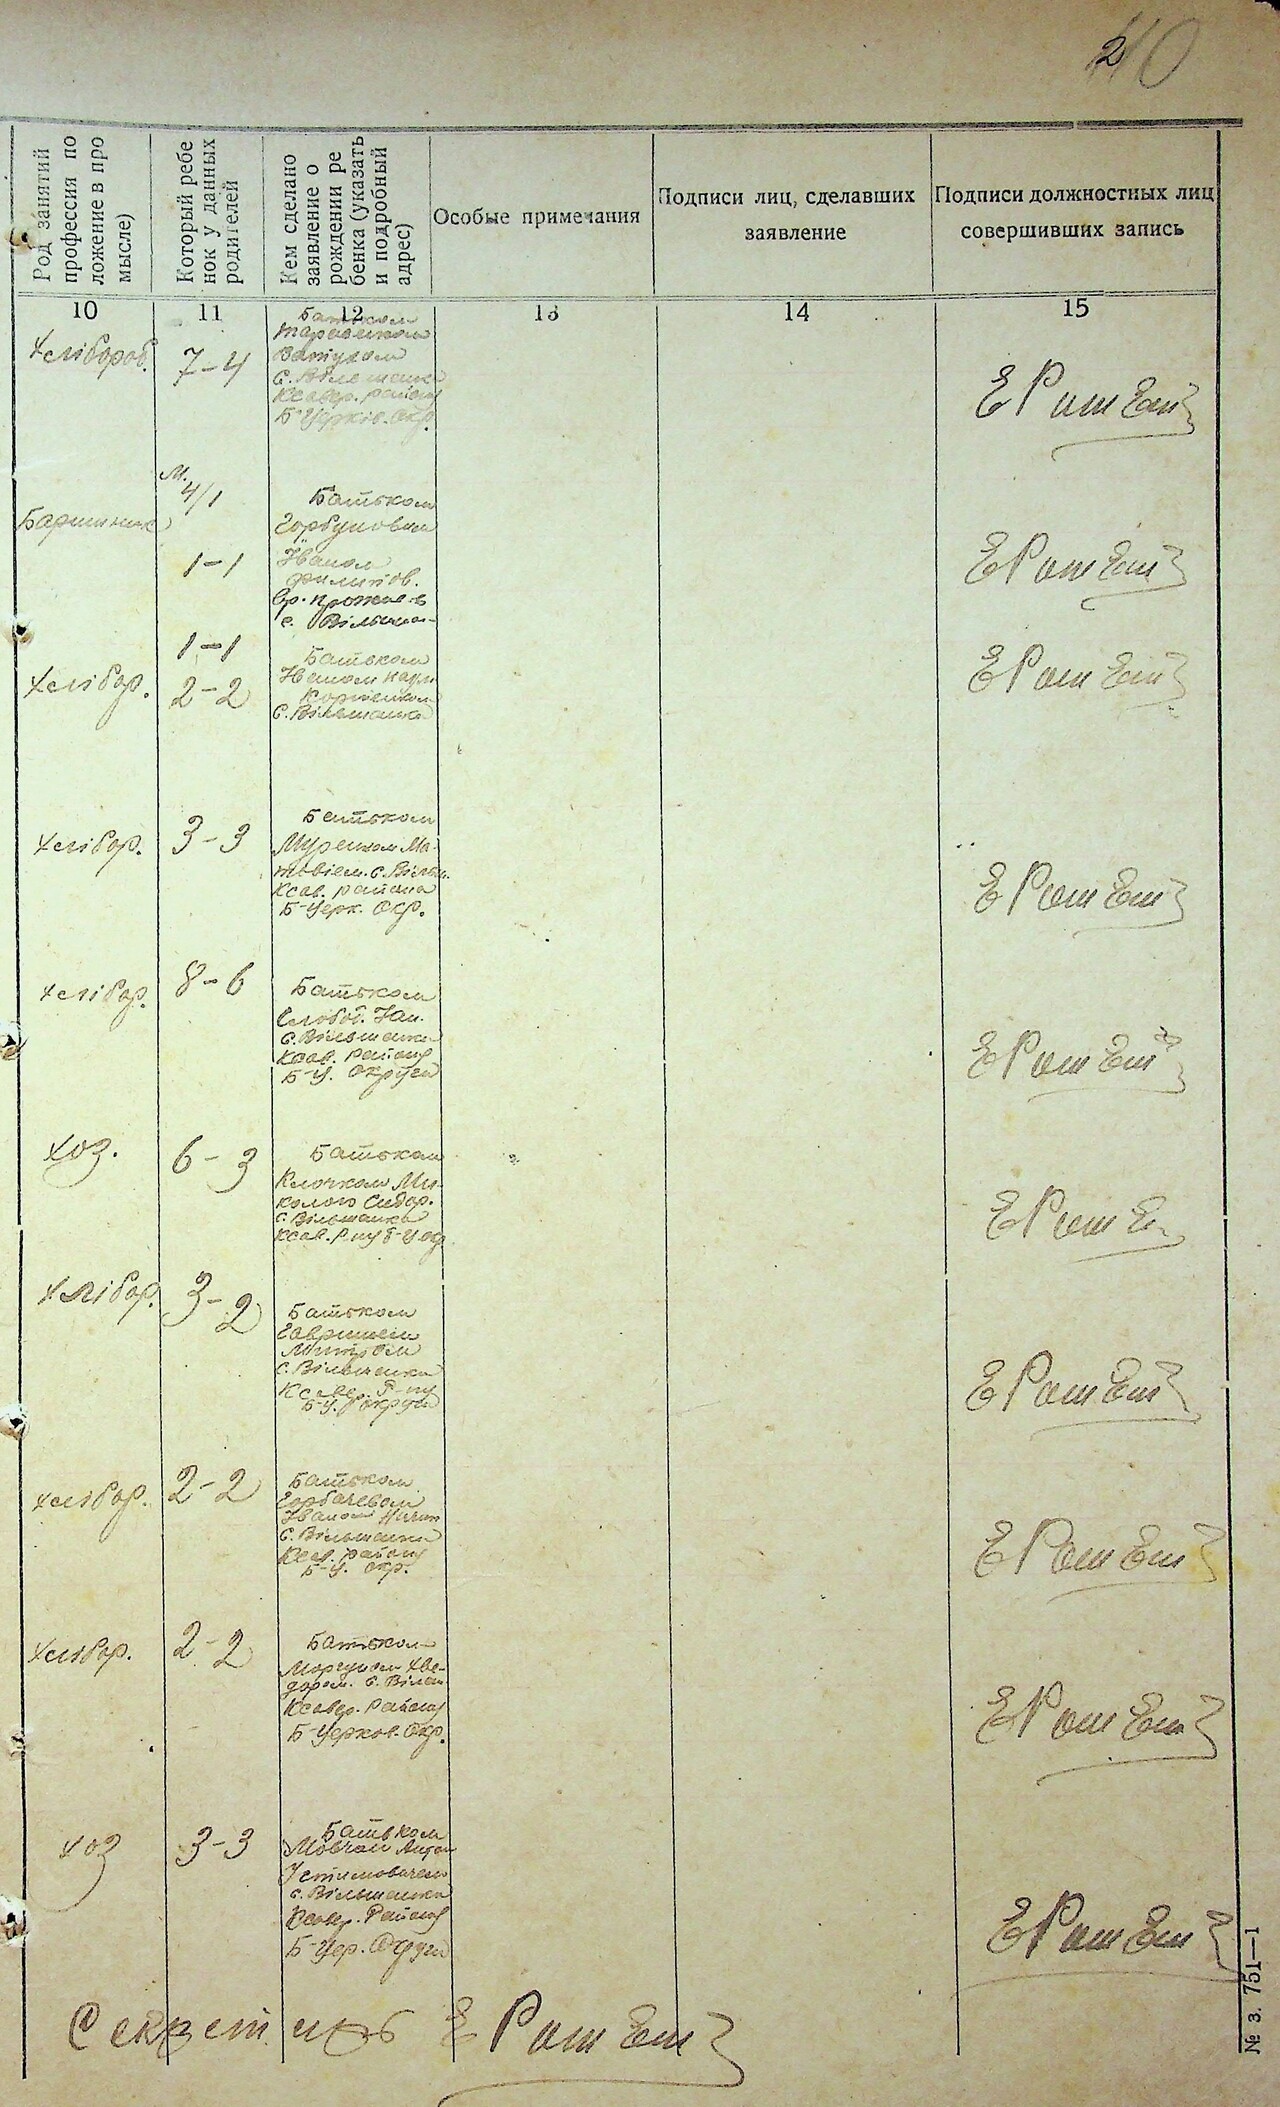 240
Род занятий
профессия по
ложение в про
мысле)
Который ребе
нок у данных
родителей
Кем сделано
заявление о
рождении ре
бенка (указать
и подробный
адрес)
Особые примечания
Подписи лиц, сделавших
заявление
Подписи должностных лиц
совершивших запись
10
11
12
13
14
15
Хлібороб.
7-4
Батьком
с. Вільшанка
Ксавер. району
Б-Церків. Окр.
Е Рот
М.
4/1
1-1
Батьком
Горбуновим
Іваном
Филипов.
вр. прожив. в
с. Вільшан-
Е Рот
1-1
Хлібор.
2-2
Батьком
Іваном
с. Вільшанка
Е Рот
Хлібор.
3-3
Батьком
Муренком Ма-
твієм. с. Вільш.
Ксав. района
Б-Церк. Окр.
Е Рот
Хлібор.
8-6
Батьком
Слобод. Іан.
с. Вільшанка
Ксав. Району
Б-Ц. Округи
Е Рот
Хоз.
6-3
Батьком
Клочком Ми-
колою Сидор.
с. Вільшанка
Ксав. Р-ну Б-Ц окр
Е Рот
Хлібор.
3-2
Батьком
с. Вільшанка
Ксавер. Р-ну
Б-Ц. Округи
Е Рот
Хлібор.
2-2
Батьком
Горбачевом
Іваном
с. Вільшанка
Ксав. району
Б-Ц. Окр.
Е Рот
Хлібор.
2-2
Батьком
Моргуном Хве-
дором. с. Вільш.
Ксавер. Району
Б-Церков. Окр.
Е Рот
Хоз
3-3
Батьком
Мовчан Антон
Устимовичем
с. Вільшанка
Ксавер. Району
Б-Цер. Округи
Е Рот
Секретарь Е Рот
№ З. 751—1